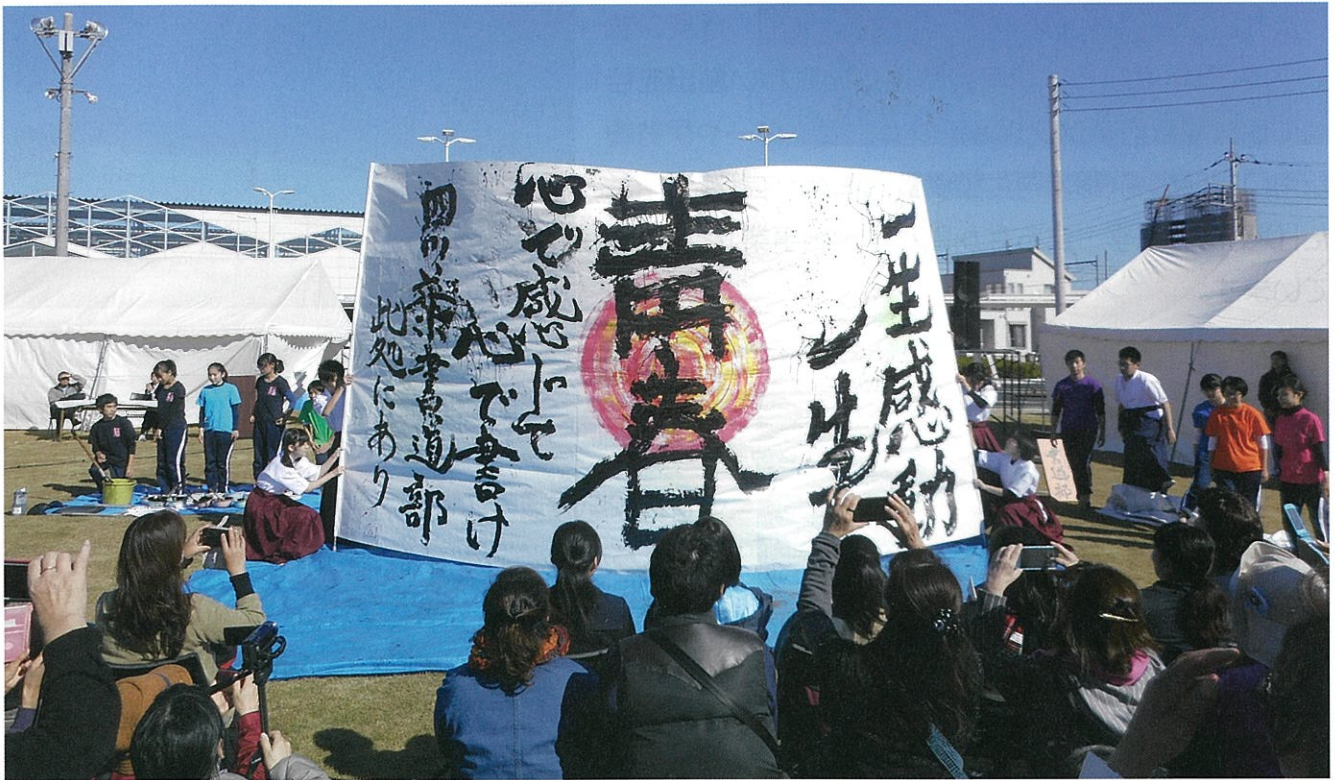 一生感動
一生
青春
心で感じて
心で書け
四ツ葉書道部
此処にあり